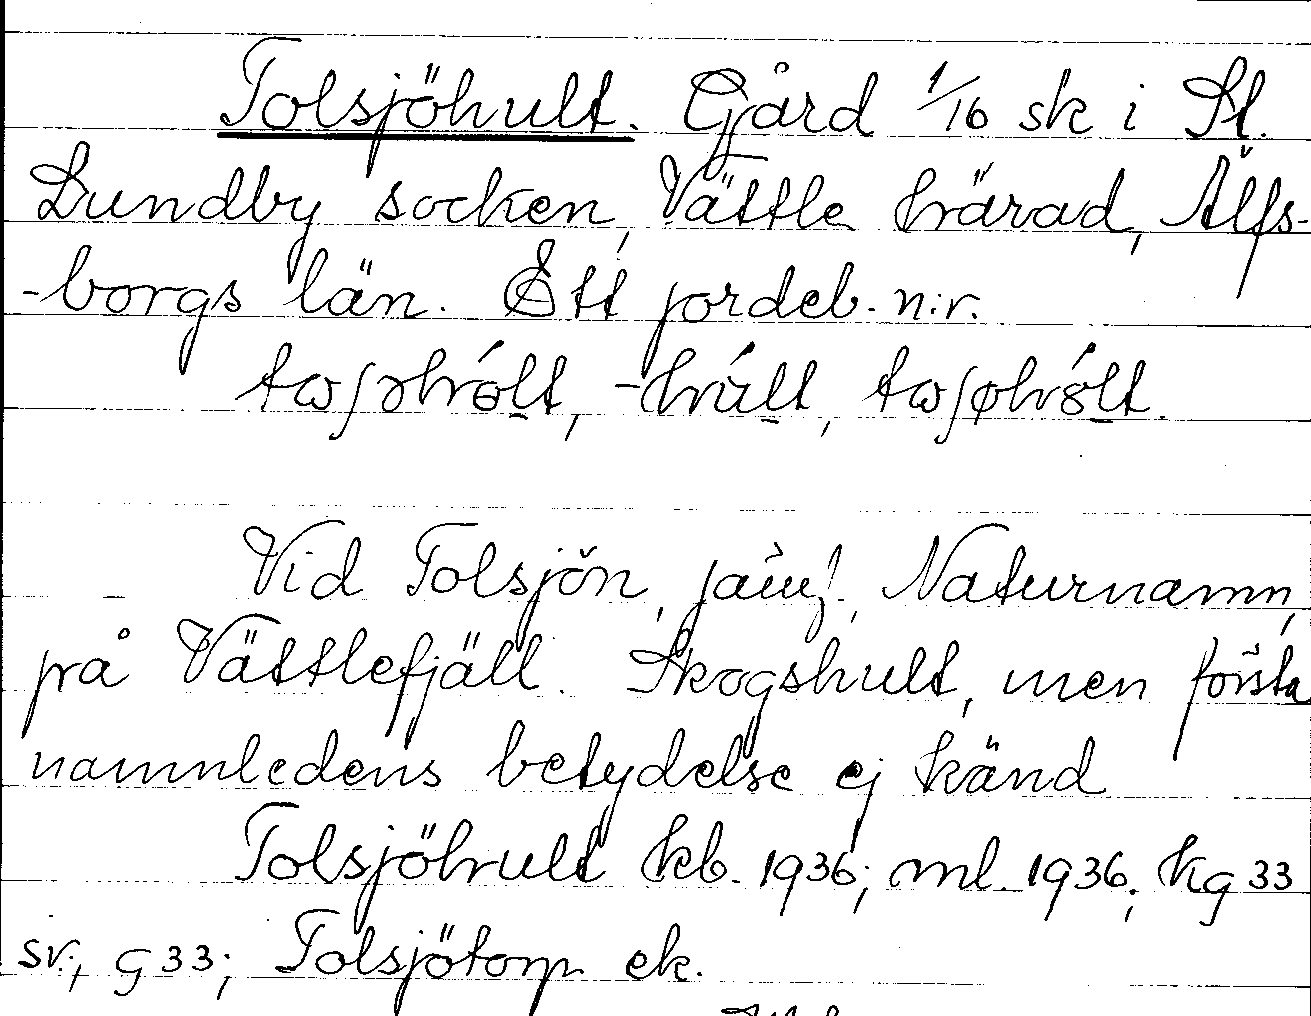 Tolsjöhult. Gård 1/16 sk i St.
Lundby socken, Vättle härad, Älfs-
-borgs län. Ett jordeb. n:r.
tωʃəhólt, -húlt, tωʃøhólt.
Vid Tolsjön, Naturnamn,
på Vättlefjäll. Skogshult, men första
namnledens betydelse ej känd
Tolsjöhult kb. 1936; ml. 1936; Kg 33
sv., G 33; Tolsjötorp ek.